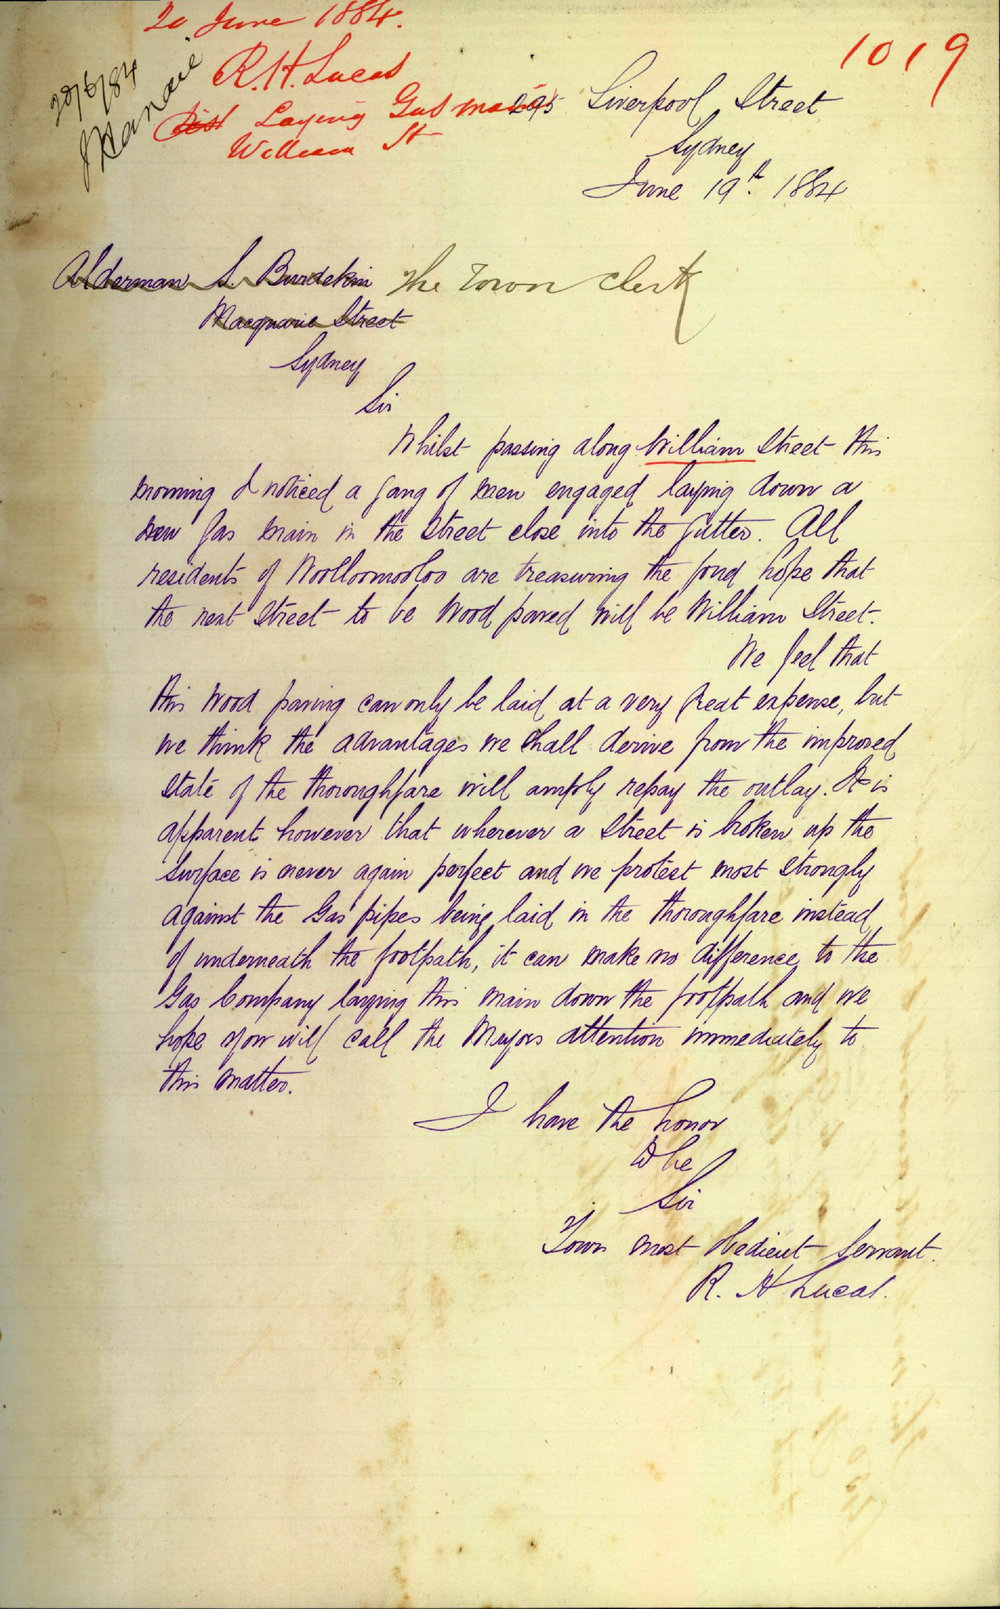 20 June 1884.
R. H. Lucas
Laying Gas mains
William St
20/6/84
1019
295 Liverpool Street
Sydney
June 19th. 1884
Alderman S. Burdekin The Town Clerk
Macquarie Street
Sydney
Sir
Whilst passing along William Street this
morning I noticed a gang of men engaged laying down a
new gas main in the street close into the gutter. All
residents of Woolloomooloo are treasuring the fond hope that
the next street to be wood paved will be William Street.
We feel that
this wood paving can only be laid at a very great expense, but
we think the advantages we shall derive from the improved
state of the thoroughfare will amply repay the outlay. It is
apparent however that wherever a street is broken up the
surface is never again perfect and we protest most strongly
against the Gas pipes being laid in the thoroughfare instead
of underneath the footpath, it can make no difference to the
Gas Company laying this main down the footpath and we
hope you will call the Mayors attention immediately to
this matter.
I have the honor
to be
Sir
Your most obedient servant.
R. H Lucas.